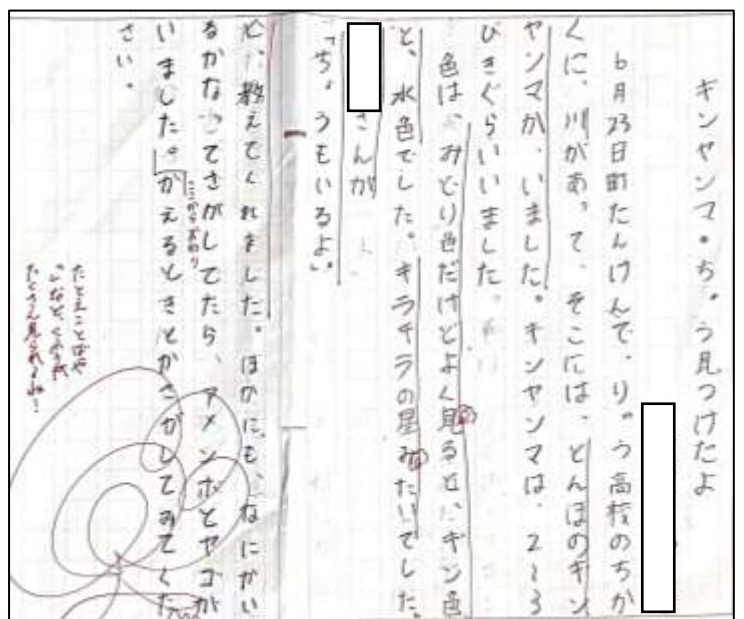 ギンヤンマ・ちょう見つけたよ
6月23日町たんけんで、りゅう高校のちか
くに、川があって、そこには、とんぼのギン
ヤンマが、いました。ギンヤンマは、2〜3
びきぐらいいました。
色は、みどり色だけどよく見ると、ギン色
と、水色でした。キラキラの星みたいでした。
さんが
「ちょうもいるよ。」
と、教えてくれました。ほかにも、なにがい
るかなってさがしてたら、アメンボとヤゴが
いました。かえるときとかさがしてみてくだ
さい。
ここからおわり
たとえことばや
「」など、くふうが
たくさん見られるね!